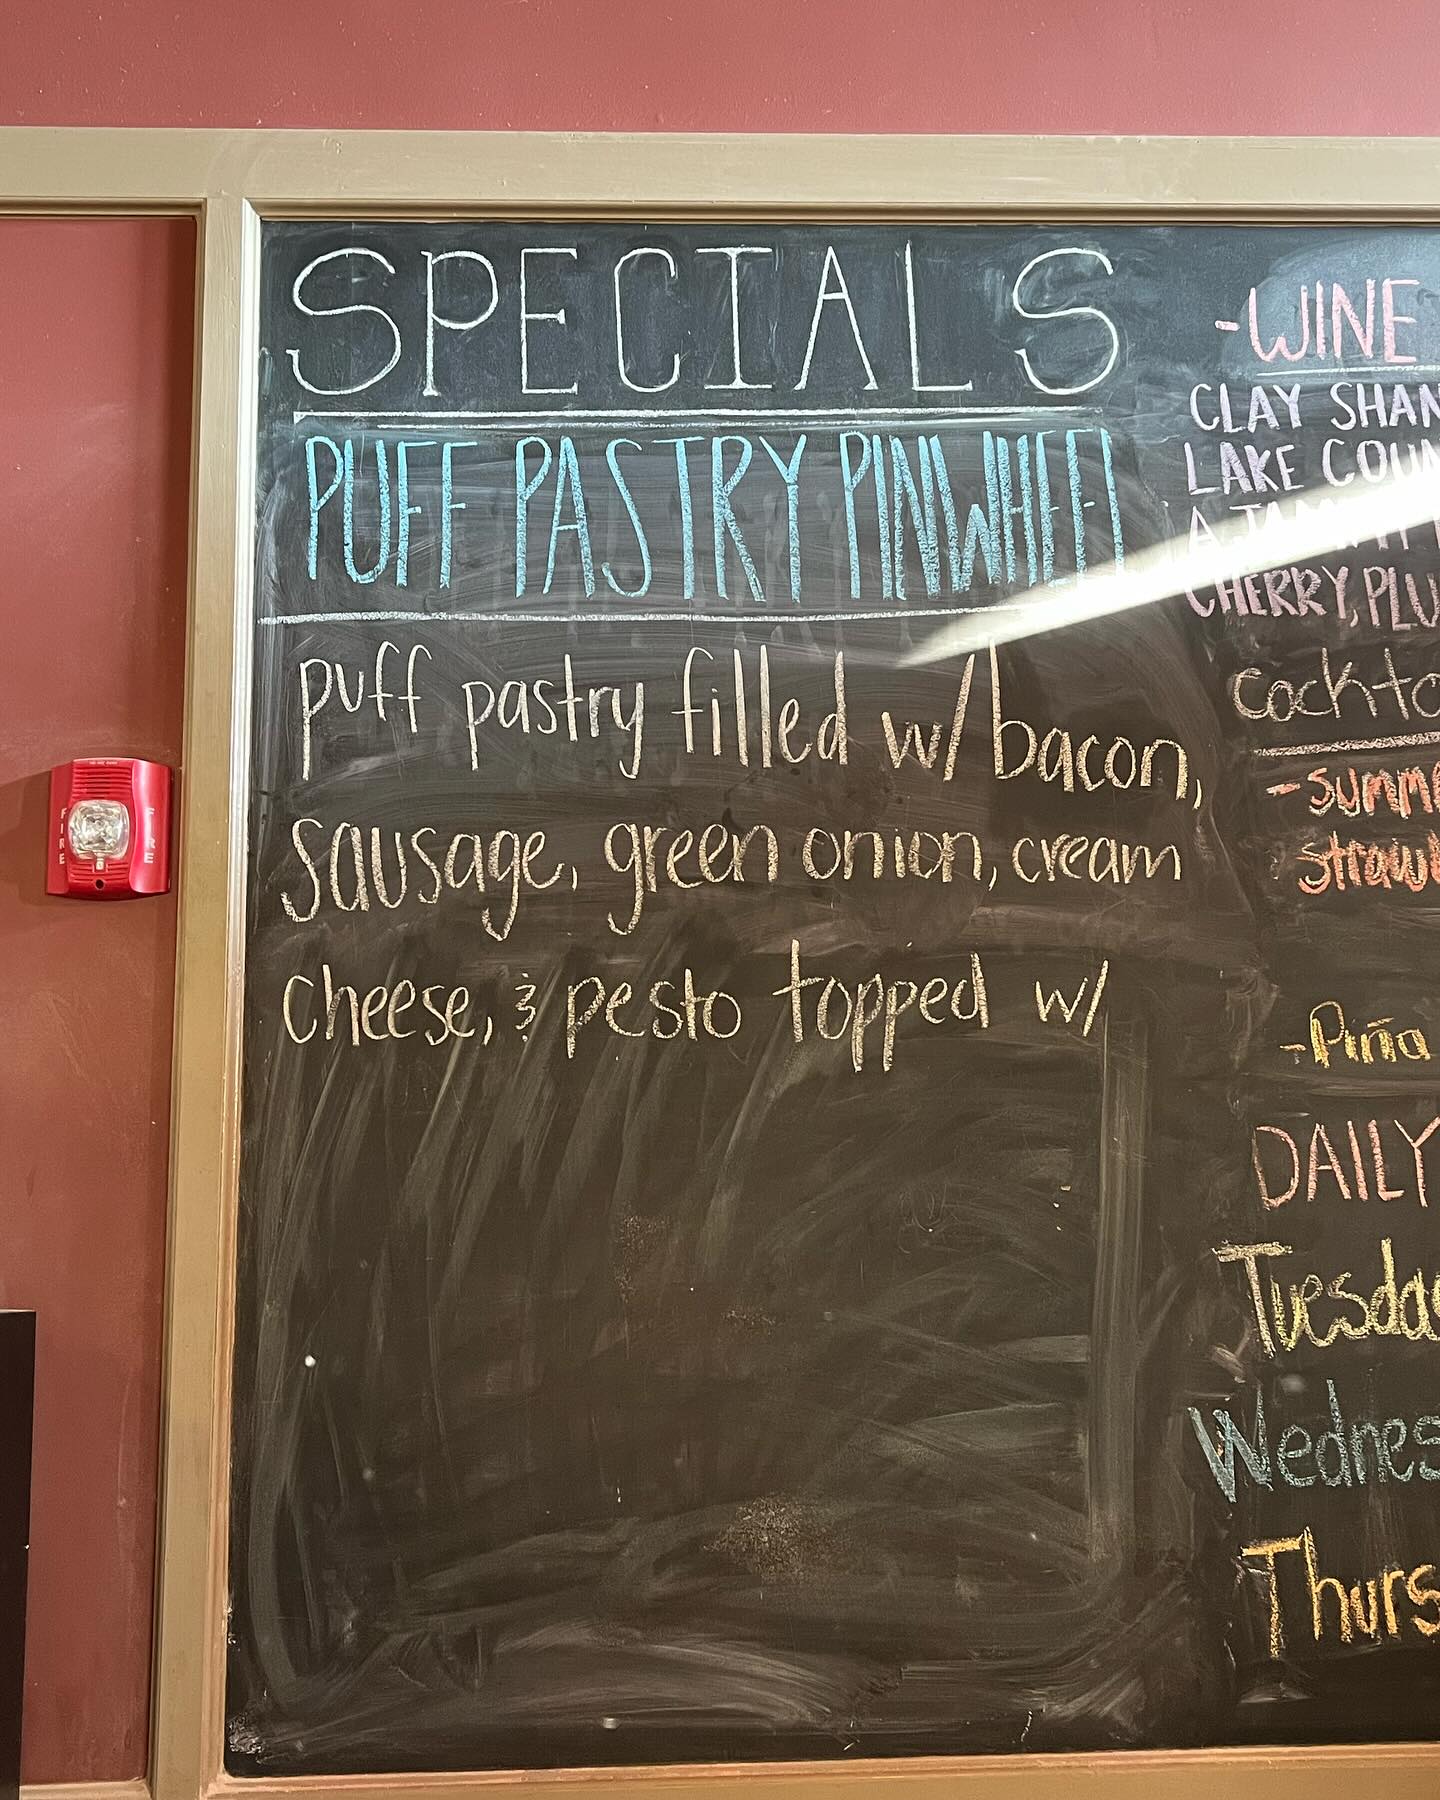 SPECIALS
PUFF PASTRY PINWHEEL
puff pastry filled w/ bacon,
sausage, green onion, cream
cheese, & pesto topped w/
-WINE
CLAY SHAN
LAKE COUN
CHERRY, PLU
cockta
-summe
straw
-Piña
DAILY
Tuesda
Wednes
Thurs
FIRE
FIRE